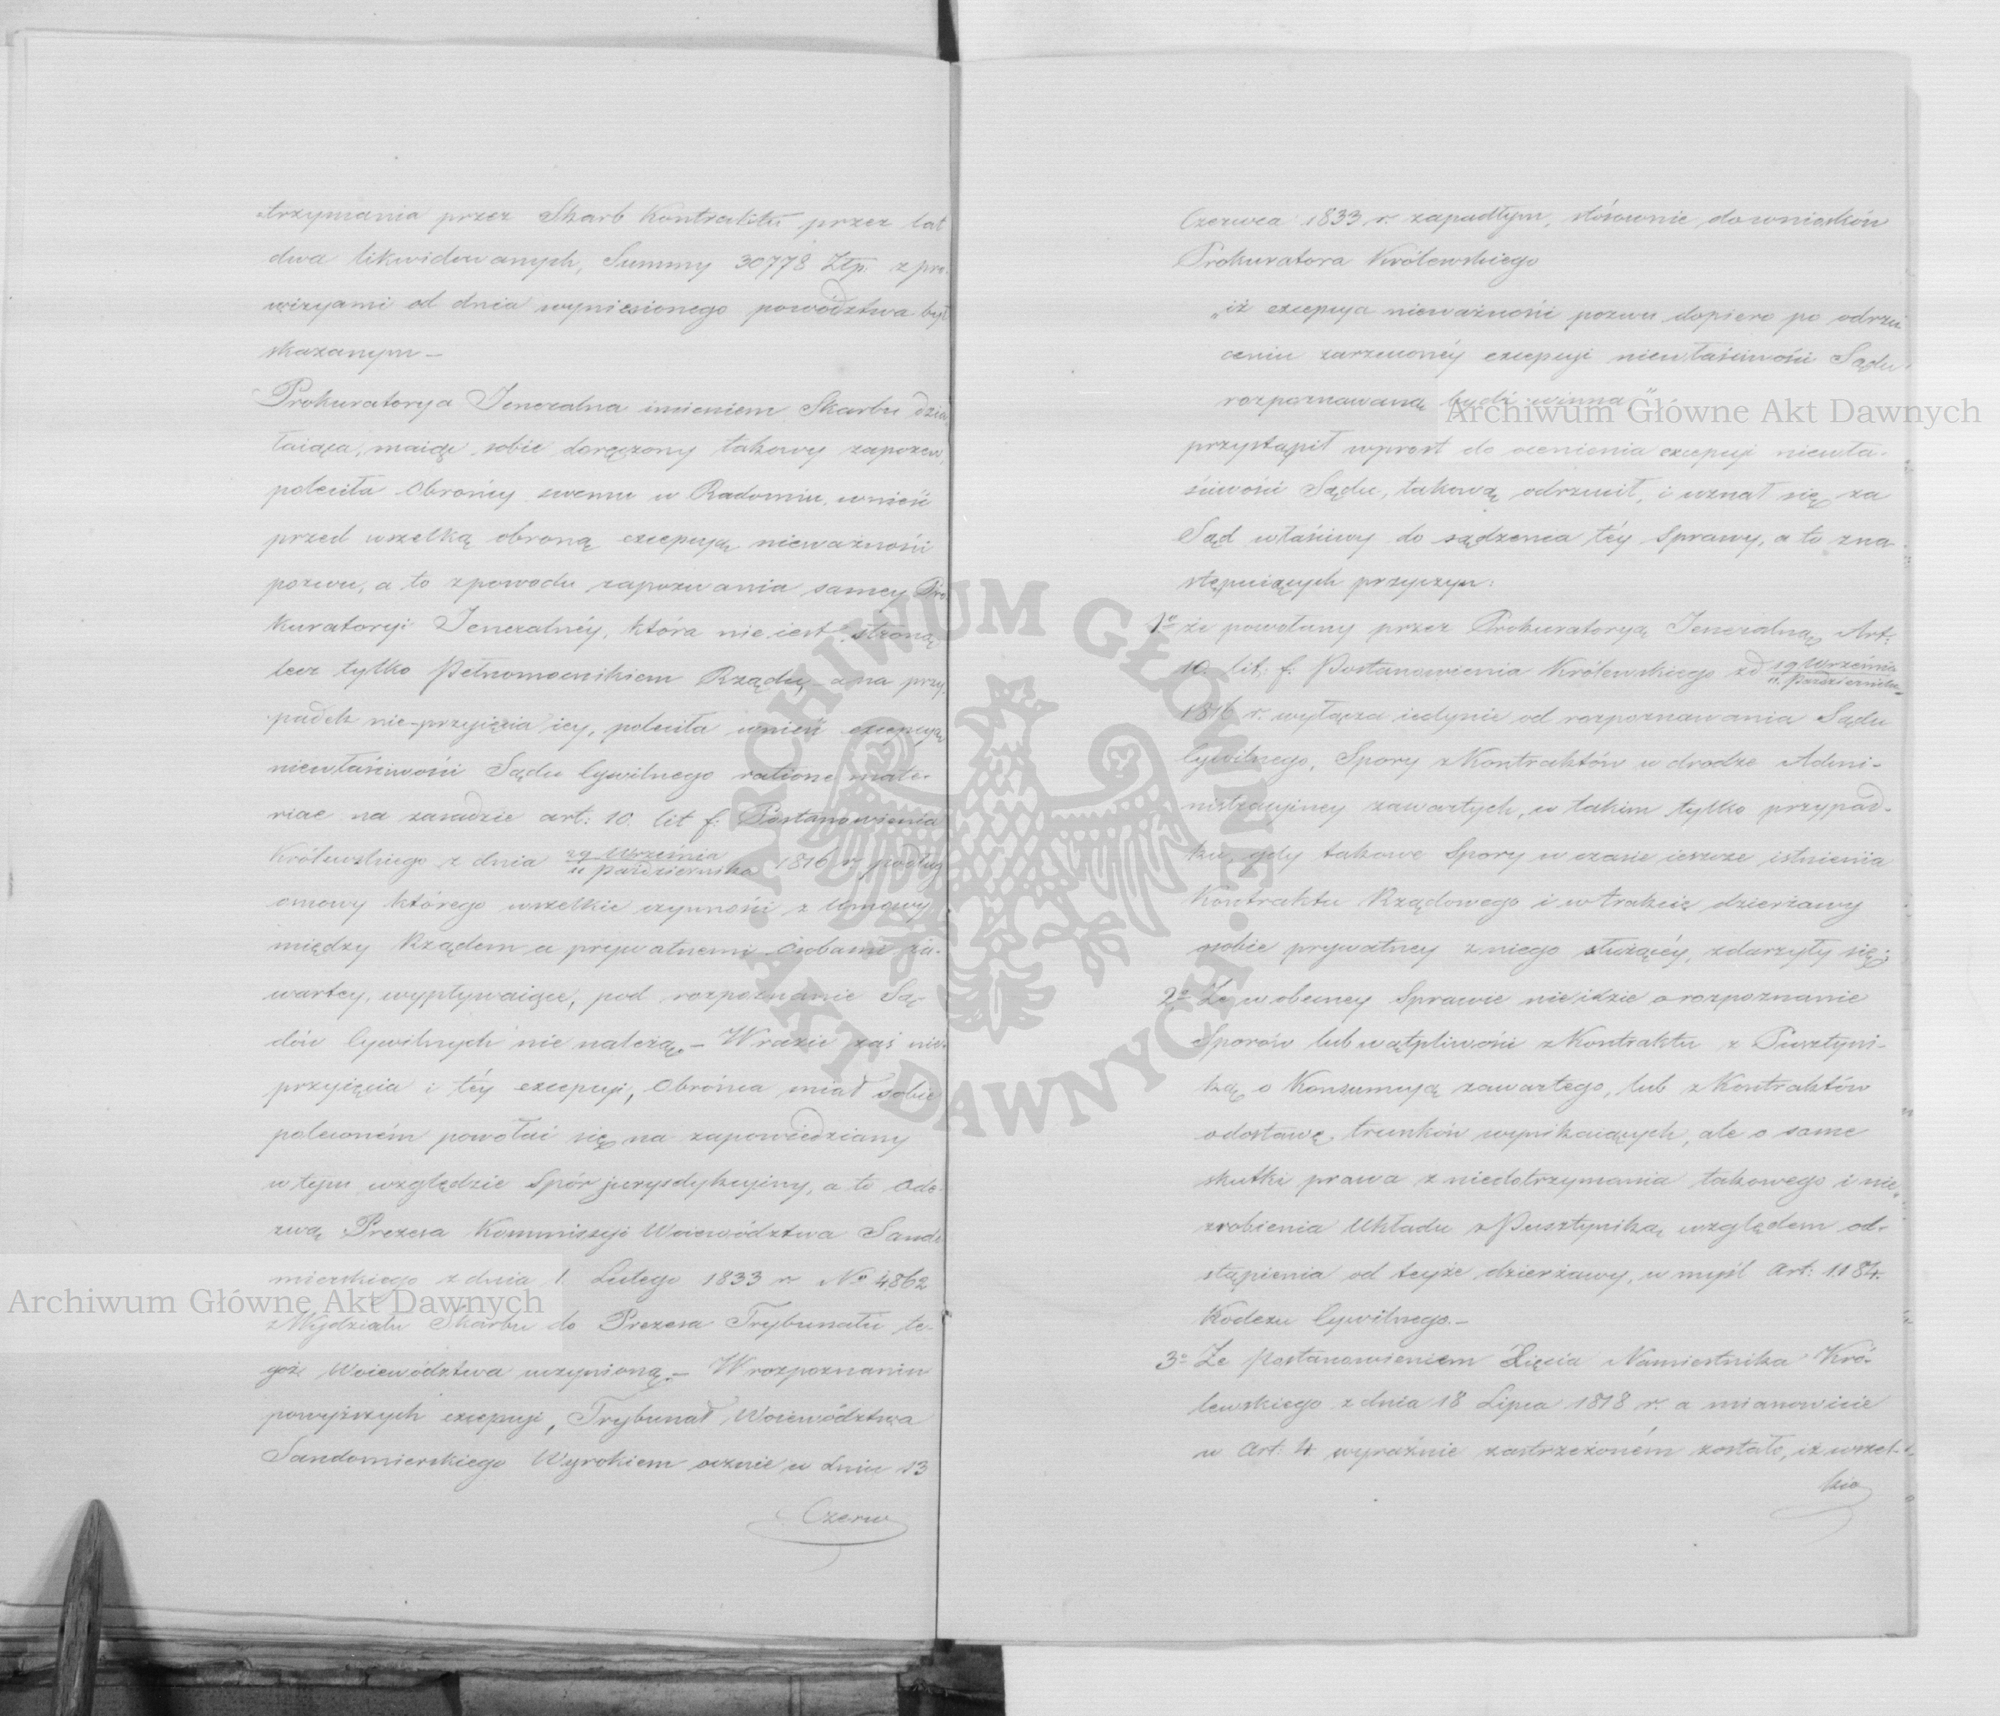 trzymania przez Skarb Kontraktu przez lat
dwa likwidowanych, Summy 30778 Złp. z pro-
wizyami od dnia wyniesionego powództwa był
skazanym –
Prokuratorya Jeneralna imieniem Skarbu dzia
łaiąca, maiąc sobie doręczony takowy zapozew,
poleciła Obrońcy swemu w Radomiu, wnieść
przed wszelką obroną excepcyą nieważności
pozwu, a to z powodu zapozwania samey Pro
kuratoryi Jeneralnéy, która nie iest stroną
lecz tylko Pełnomocnikiem Rządu, a na przy-
padek nie-przyięcia iey, poleciła wnieść excepcyą
niewłaściwości Sądu Cywilnego ratione mate-
riae na zasadzie art: 10. lit f: Postanowienia
Królewskiego z dnia 29 Września
11 Października 1816 r. podług
omowy którego wszelkie czynności z Umowy
między Rządem a prywatnemi Osobami za-
wartey, wypływaiące, pod rozpoznanie Są-
dów Cywilnych nie należą. – W razie zaś nie-
przyięcia i téy excepcyi, Obrońca miał sobie
poleconém powołać się na zapowiedziany
w tym względzie Spór jurysdykcyiny, a to Ode-
zwą Prezesa Kommissyi Województwa Sando
mierskiego z dnia 1. Lutego 1833 r. No 4862
z Wydziału Skarbu do Prezesa Trybunału te-
goż Województwa uczynioną. – W rozpoznaniu
powyższych excepcyi, Trybunał Województwa
Sandomierskiego Wyrokiem ocznie w dniu 13
Czerw
Czerwca 1833 r. zapadłym, stósownie do wniosków
Prokuratora Królewskiego
„iż excepcya nieważności pozwu dopiero po odrzu
ceniu zarzuconéy excepcyi niewłaściwości Sądu
rozpoznawaną bydź winna"
przystąpił wprost do ocenienia excepcyi niewła-
ściwości Sądu, takową odrzucił, i uznał się za
Sąd właściwy do sądzenia téy Sprawy, a to z na
stępuiących przyczyn:
1o że powołany przez Prokuratoryą Jeneralną Art:
10. lit: f: Postanowienia Królewskiego z d 29 Września
11. Października
1816 r. wyłącza iedynie od rozpoznawania Sądu
Cywilnego, Spory z Kontraktów w drodze Admi-
nistracyiney zawartych, w takim tylko przypad-
ku, gdy takowe Spory w czasie ieszcze istnienia
Kontraktu Rządowego i w trakcie dzierżawy
osobie prywatney z niego służącéy, zdarzyły się;
2o Że w obecney Sprawie nie idzie o rozpoznanie
Sporów lub wątpliwości z Kontraktu z Pusztyni-
ką o Konsumcyą zawartego, lub z Kontraktów
o dostawę trunków wynikaiących, ale o same
skutki prawa z niedotrzymania takowego i nie
zrobienia Układu z Pusztyniką względem od-
stąpienia od teyże dzierżawy, w myśl Art: 1184.
Kodexu Cywilnego. –
3o Że Postanowieniem Xięcia Namiestnika Kró-
lewskiego z dnia 18 Lipca 1818 r. a mianowicie
w Art: 4 wyraźnie zastrzeżoném zostało, iż wszel-
kie
Archiwum Główne Akt Dawnych
Archiwum Główne Akt Dawnych
ARCHIWUM GŁÓWNE AKT DAWNYCH